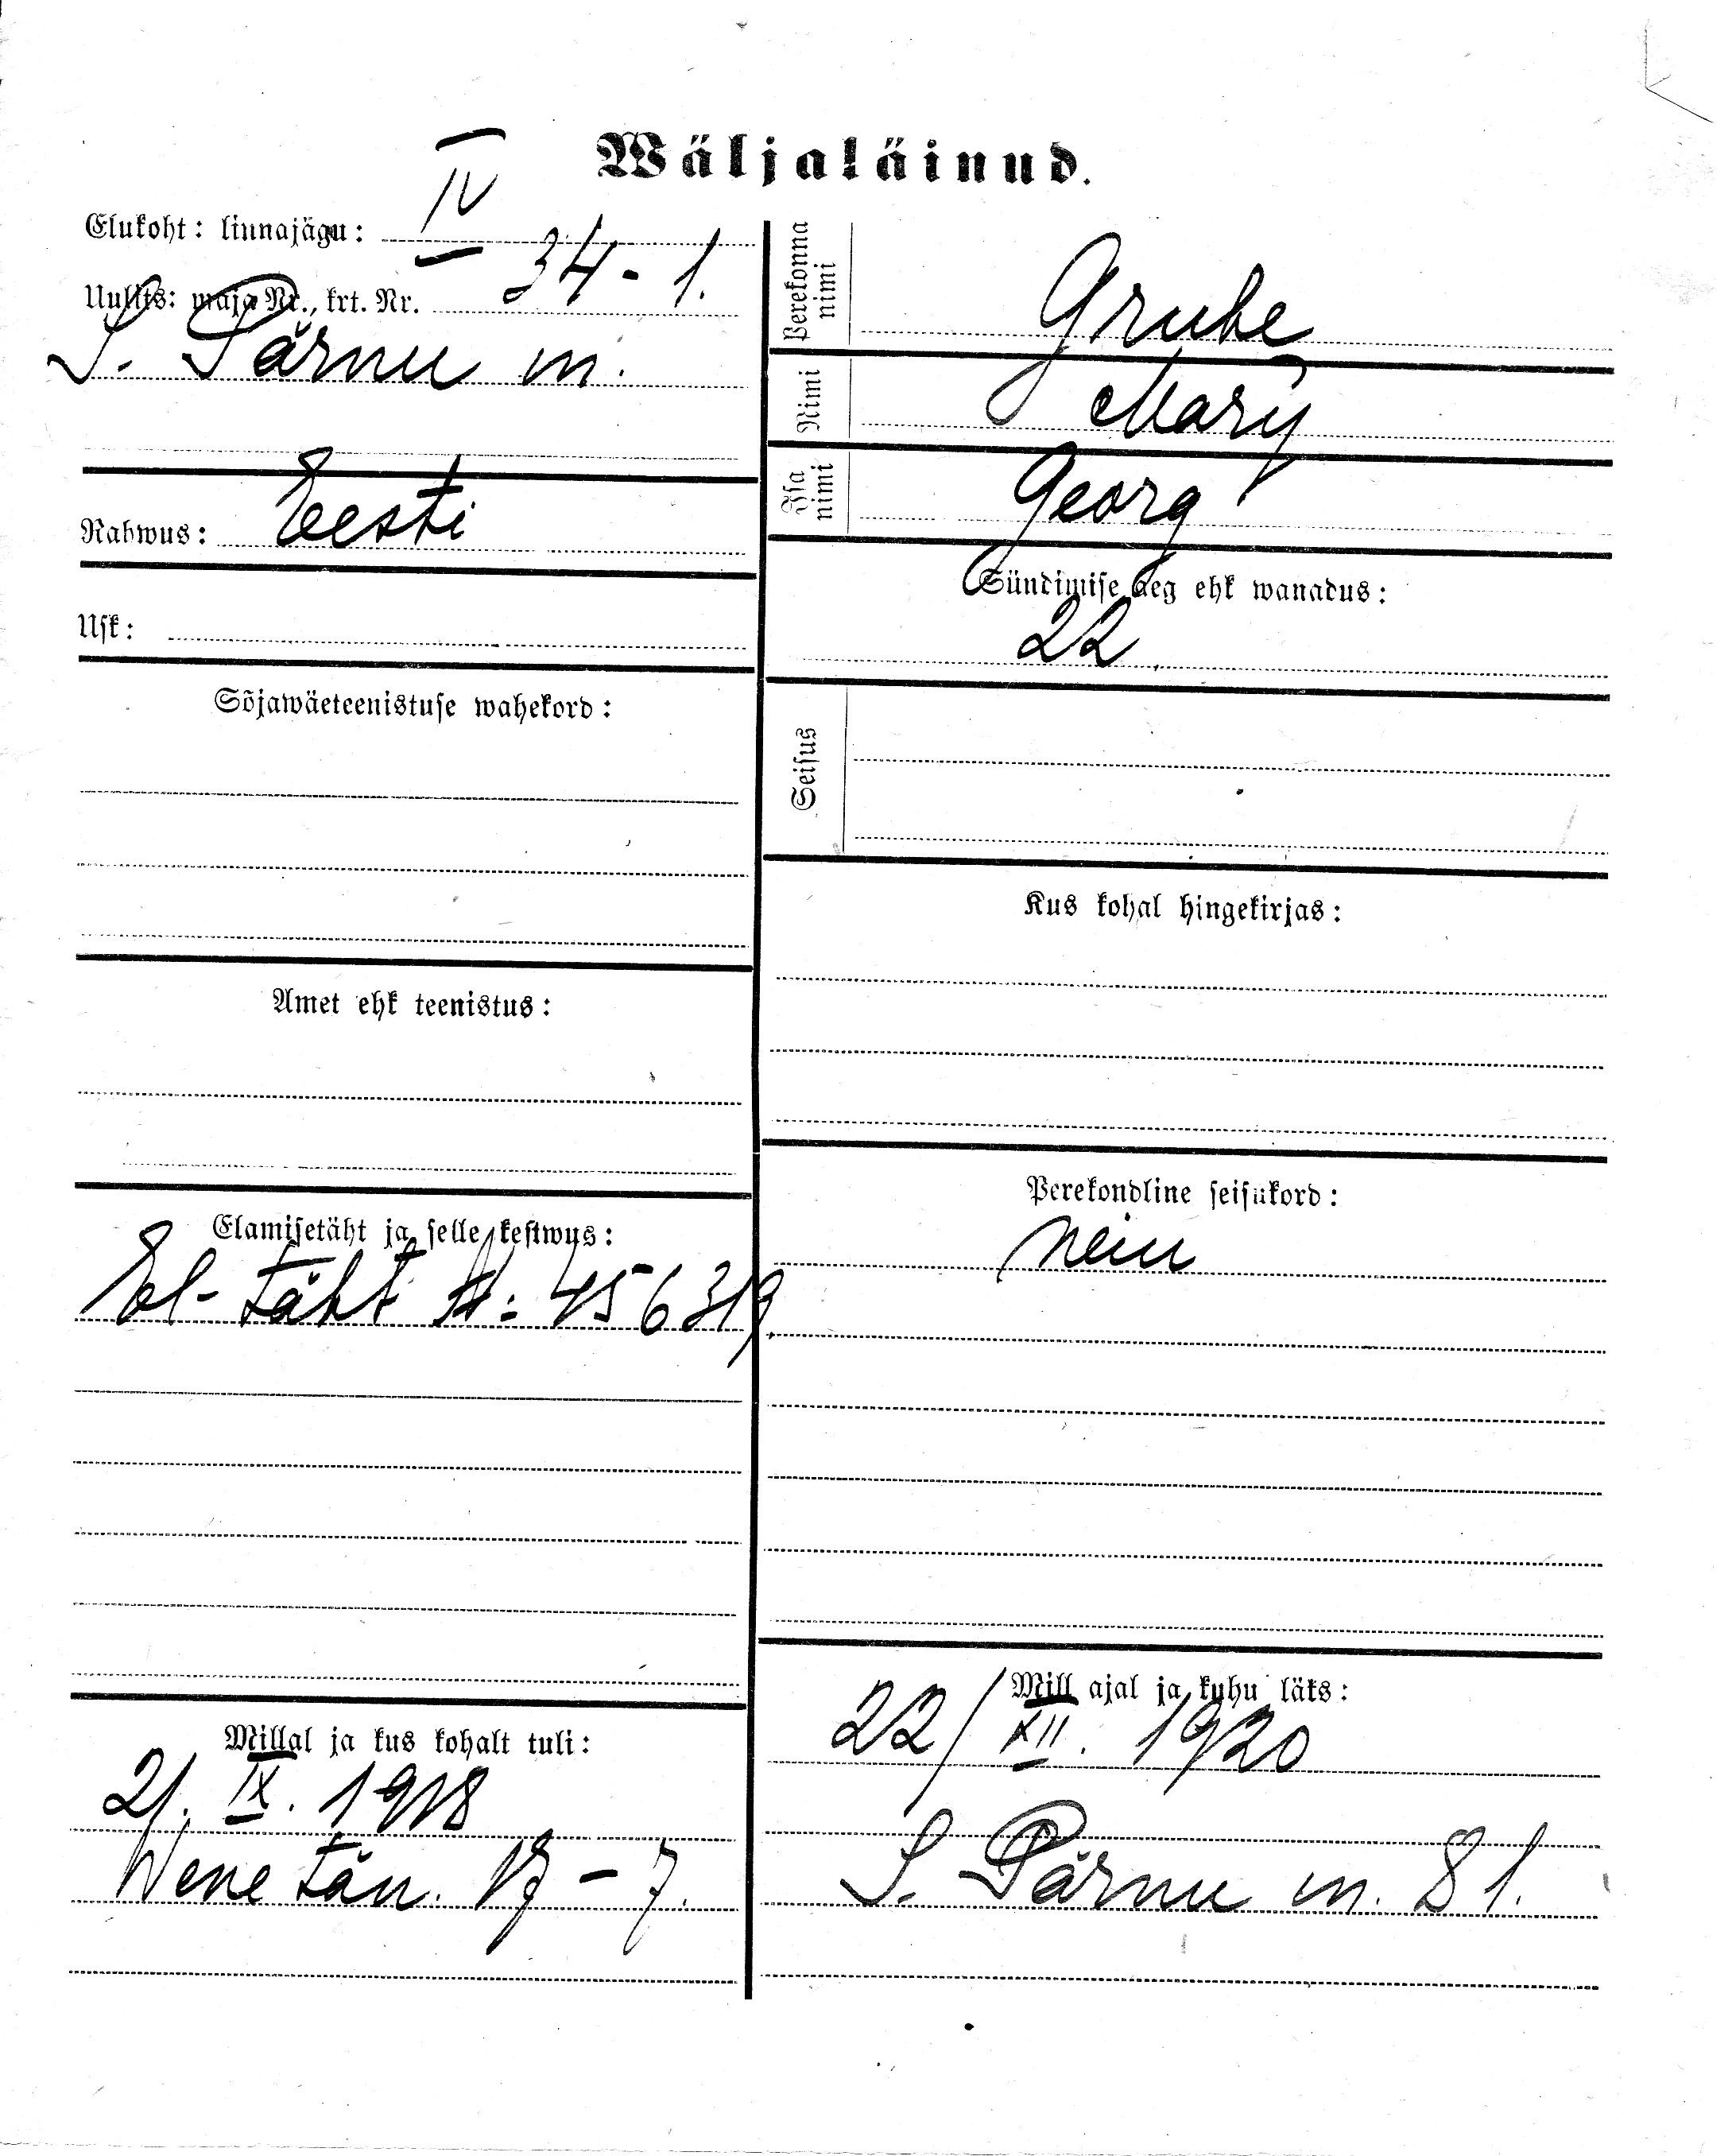 Wäljaläinud.
Elukoht: linnajägu: IV
Uulits: maja Nr., krt. Nr. 34 - 1.
S. Pärnu m.
Rahwus: Eesti
Usk:
Sõjawäeteenistuse wahekord:
Amet ehk teenistus:
Elamisetäht ja selle kestwus:
El- täht №: 456319
Millal ja kus kohalt tuli:
21. IX. 1918
Wene tän. 17 - 7.
Perekonna nimi Grube
Nimi Mary
Isa nimi Georg
Sündimise aeg ehk wanadus:
22
Seisus
Kus kohal hingekirjas:
Perekondline seisukord:
nein
Mill ajal ja kuhu läks:
22/XII. 1920
S. Pärnu m. 81.